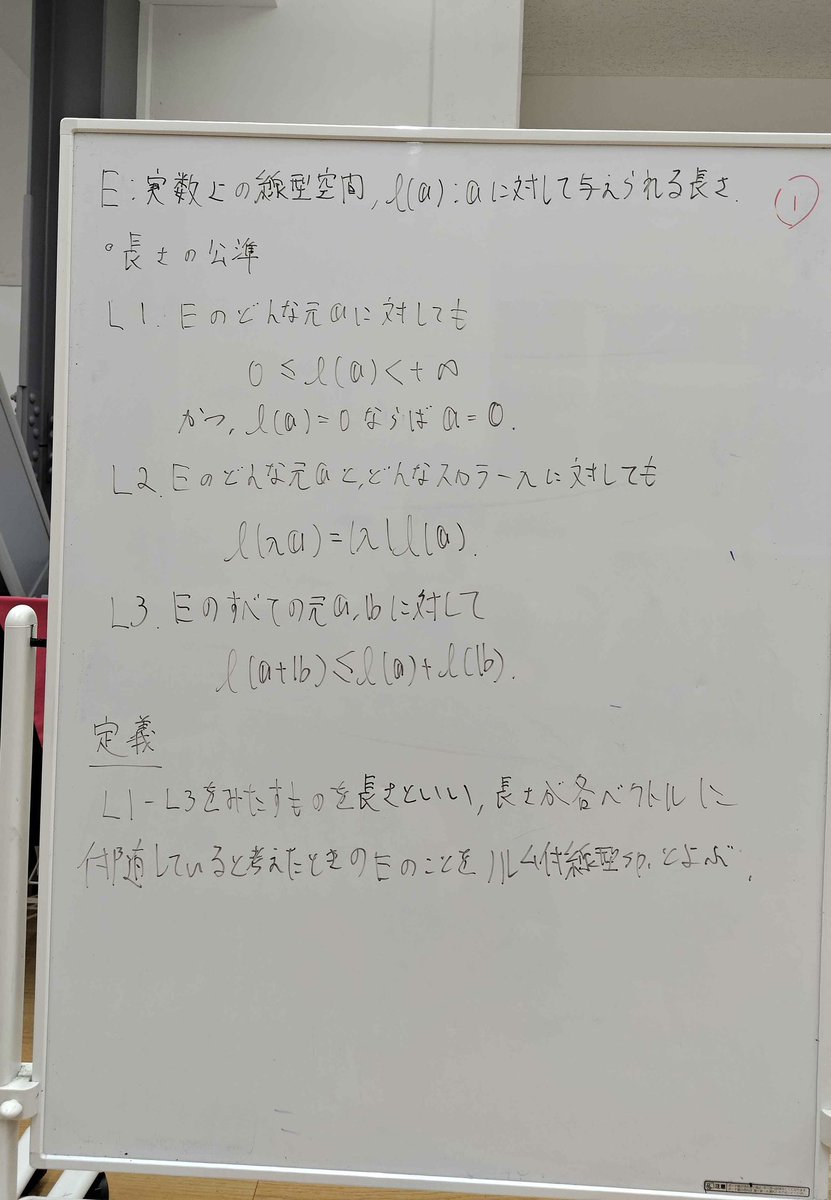 E:実数上の線型空間, ℓ(a):aに対して与えられる長さ.
①
○長さの公準
L1. Eのどんな元aに対しても
0≤ℓ(a)<+∞
かつ, ℓ(a)=0ならばa=0.
L2. Eのどんな元aと,どんなスカラーλに対しても
ℓ(λa)=|λ|ℓ(a).
L3. Eのすべての元a,bに対して
ℓ(a+b)≤ℓ(a)+ℓ(b).
定義
L1-L3をみたすものを長さといい, 長さが各ベクトルに
付随していると考えたときのEのことをノルム付線型sp.とよぶ.